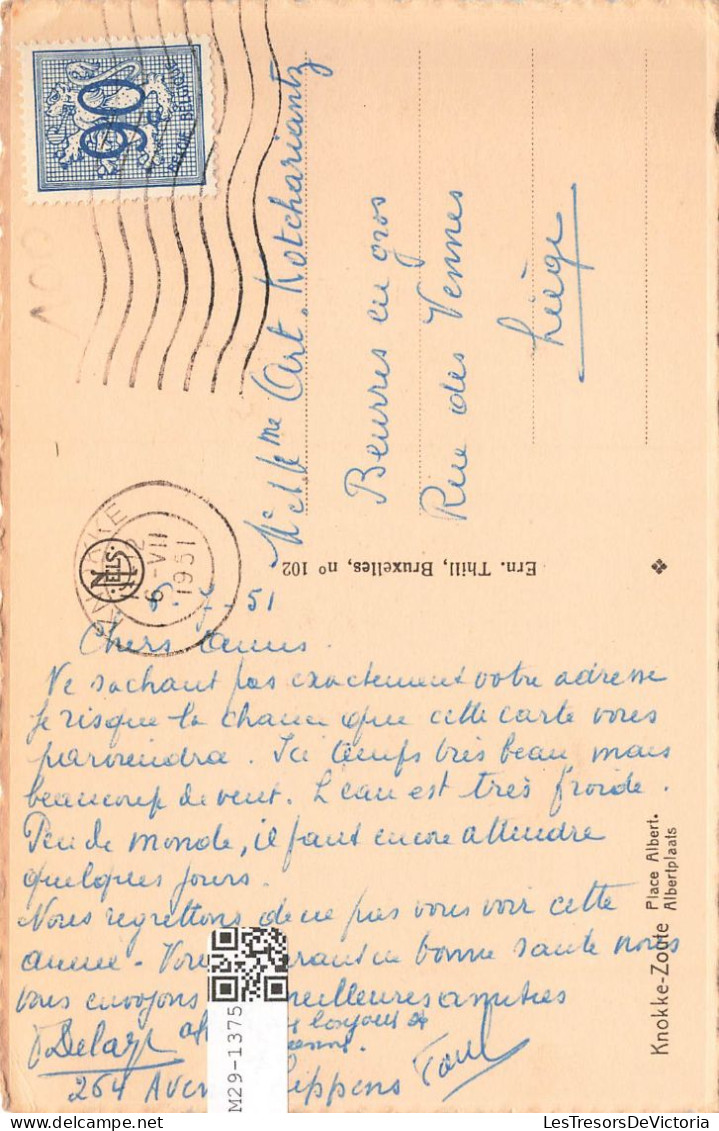 90
BELGIE BELGIQUE
KNOKKE
12
6-VII
1951
NELS
Mr et Mme Art. Kotchariantz
Beurres en gros
Rue des Vennes
Liège
Ern. Thill, Bruxelles, no 102
6-7-51
Chers amis
Ne sachant pas exactement votre adresse
je risque la chance que cette carte vous
parviendra. Ici temps très beau, mais
beaucoup de vent. L'eau est très froide.
Peu de monde, il faut encore attendre
quelques jours.
Nous regrettons de ne pas vous voir cette
année. Vous bonne santé nous
vous envoyons meilleures amitiés
Delarge
Paul
264 Aven ippens
Knokke-Zoute Place Albert.
Albertplaats
M29-1375
LesTresorsDeVictoria.com